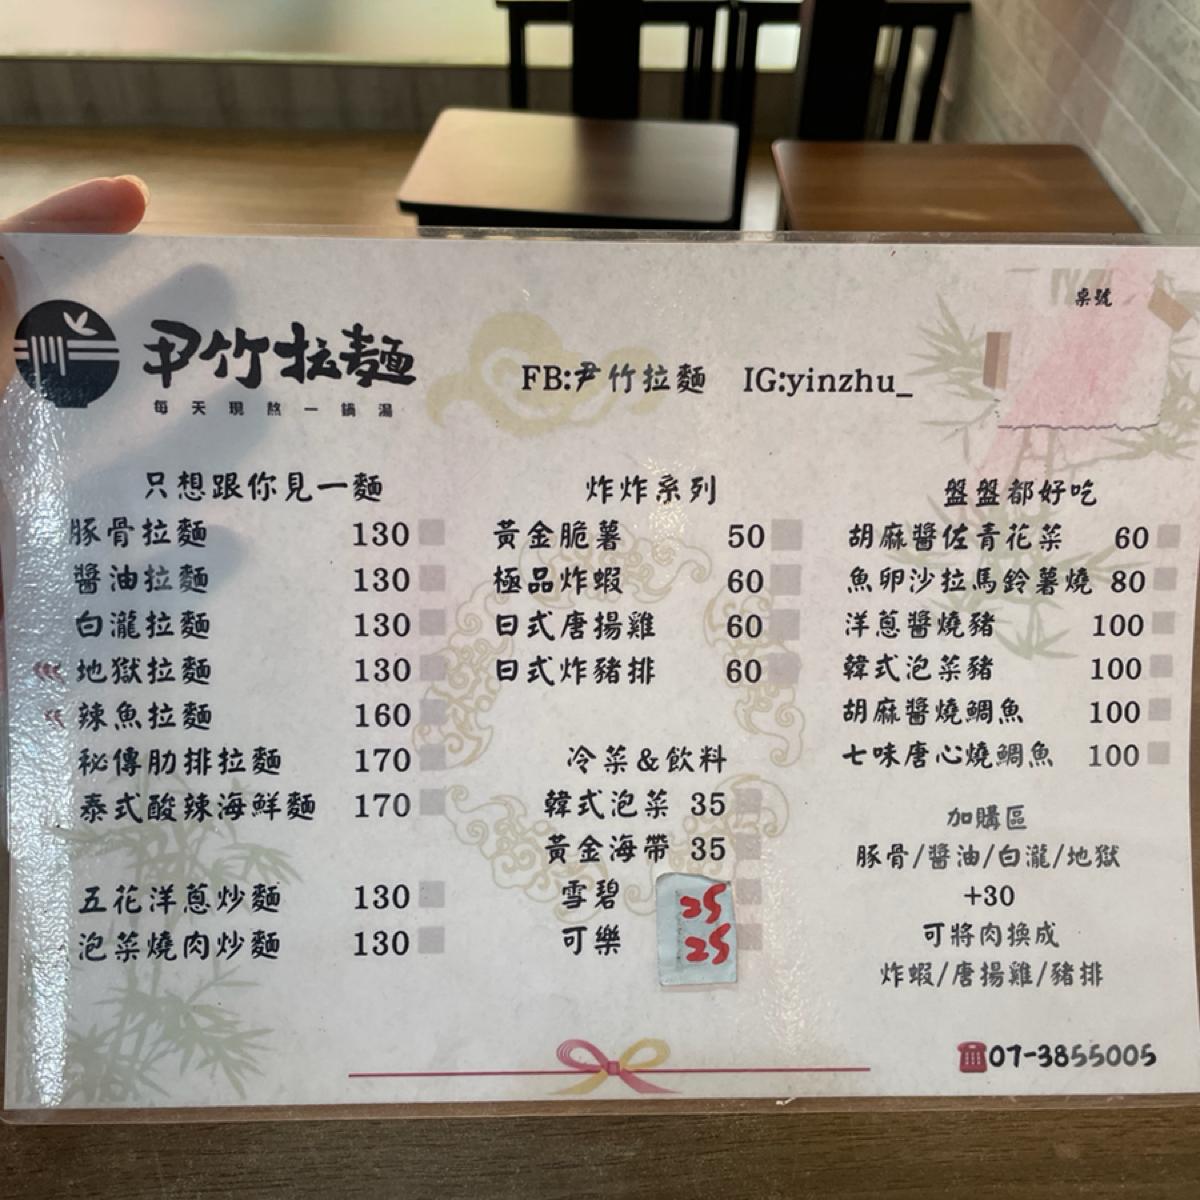 桌號
尹竹拉麵
每天現熬一鍋湯
FB:尹竹拉麵 IG:yinzhu_
只想跟你見一麵
豚骨拉麵 130
醬油拉麵 130
白瀧拉麵 130
地獄拉麵 130
辣魚拉麵 160
秘傳肋排拉麵 170
泰式酸辣海鮮麵 170
五花洋蔥炒麵 130
泡菜燒肉炒麵 130
炸炸系列
黃金脆薯 50
極品炸蝦 60
日式唐揚雞 60
日式炸豬排 60
冷菜&飲料
韓式泡菜 35
黃金海帶 35
雪碧 25
可樂 25
盤盤都好吃
胡麻醬佐青花菜 60
魚卵沙拉馬鈴薯燒 80
洋蔥醬燒豬 100
韓式泡菜豬 100
胡麻醬燒鯛魚 100
七味唐心燒鯛魚 100
加購區
豚骨/醬油/白瀧/地獄
+30
可將肉換成
炸蝦/唐揚雞/豬排
07-3855005